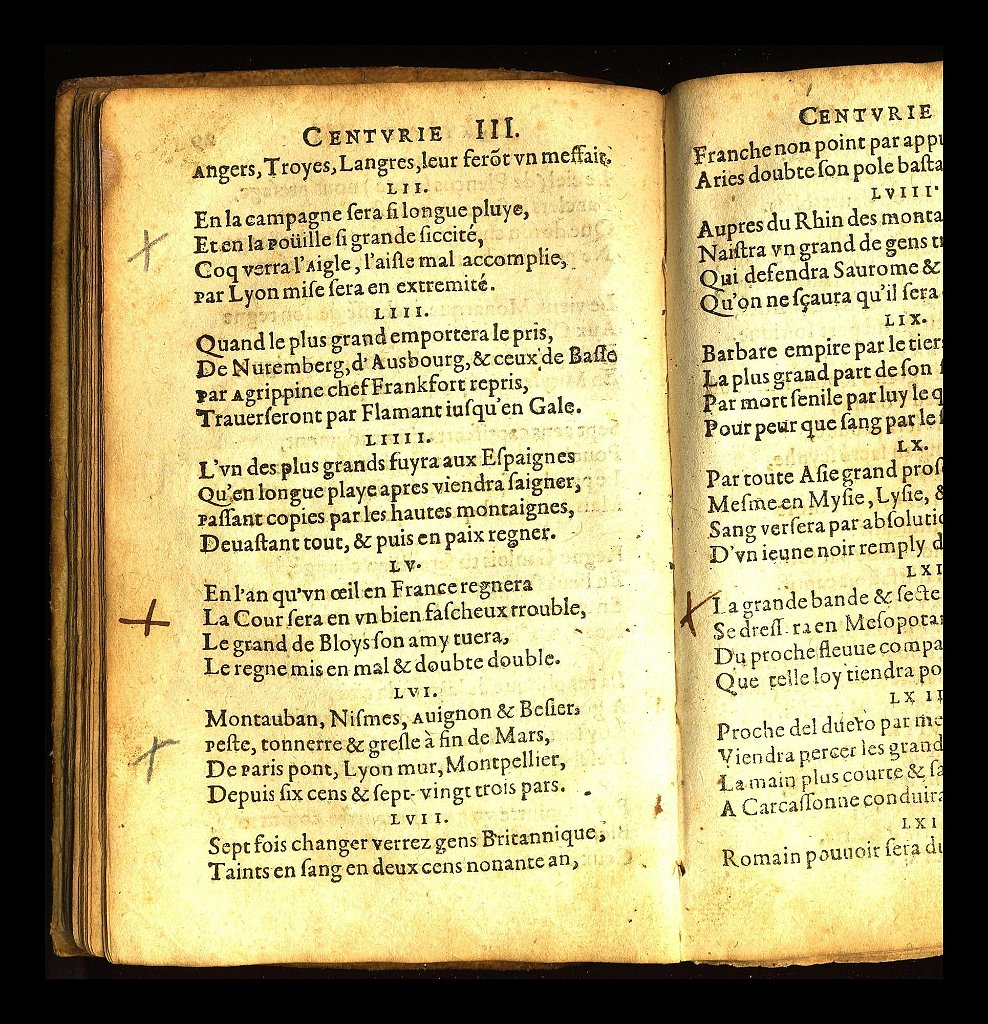 CENTVRIE III.
Angers, Troyes, Langres, leur ferõt vn meffait.
LII.
En la campagne ſera ſi longue pluye,
Et en la Poüille ſi grande ſiccité,
Coq verra l'Aigle, l'aiſle mal accomplie,
Par Lyon miſe ſera en extremité.
LIII.
Quand le plus grand emportera le pris,
De Nuremberg, d'Ausbourg, & ceux de Baſle
Par Agrippine chef Frankfort repris,
Trauerſeront par Flamant iuſqu'en Gale.
LIIII.
L'vn des plus grands fuyra aux Eſpaignes
Qu'en longue playe apres viendra ſaigner,
Paſſant copies par les hautes montaignes,
Deuaſtant tout, & puis en paix regner.
LV.
En l'an qu'vn œil en France regnera
La Cour ſera en vn bien faſcheux trouble,
Le grand de Bloys ſon amy tuera,
Le regne mis en mal & doubte double.
LVI.
Montauban, Niſmes, Auignon & Beſier,
Peſte, tonnerre & greſle à fin de Mars,
De Paris pont, Lyon mur, Montpellier,
Depuis ſix cens & ſept-vingt trois pars.
LVII.
Sept fois changer verrez gens Britannique,
Taints en ſang en deux cens nonante an,
CENTVRIE
Franche non point par appu
Aries doubte ſon pole baſta
LVIII.
Aupres du Rhin des monta
Naiſtra vn grand de gens t
Qui defendra Saurome &
Qu'on ne ſçaura qu'il ſera
LIX.
Barbare empire par le tier
La plus grand part de ſon
Par mort ſenile par luy le q
Pour peur que ſang par le
LX.
Par toute Aſie grand proſ
Meſme en Myſie, Lyſie, &
Sang verſera par abſolutio
D'vn ieune noir remply d
LXI
La grande bande & ſecte
Se dreſſ. ra en Meſopota
Du proche fleuue compa
Que telle loy tiendra po
LXII
Proche del duero par me
Viendra percer les grand
La main plus courte & ſa
A Carcaſſonne conduira
LXI
Romain pouuoir ſera du